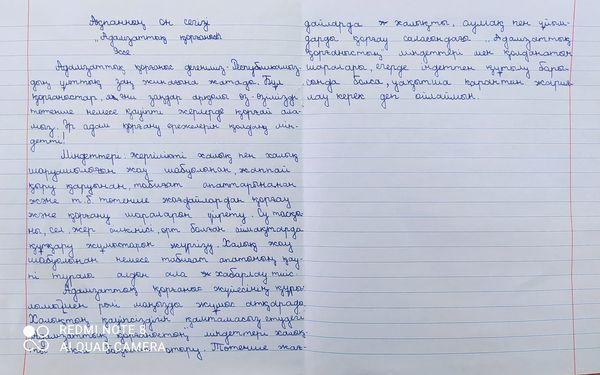 Ақпанның он сегізі
„Азаматтық қорғаныс"
Эссе
Азаматтық қорғаныс дегеніміз. Республикамыз-
дың ұлттық заң жинағына жатады. Бұл
қорғаныстар, яғни заңдар арқылы өз-өзімізді
төтенше немесе қауіпті жерлерде қорғай ала-
мыз. Әр адам қорғану ережелерін қолдану мін-
детті!
Міндеттері жергілікті халық пен халық
шаруашылығын жау шабуылынан, жаппай
қыру қаруынан, табиғат апаттарынанан
және т.б. төтенше жағдайлардан қорғау
және қорғану шараларын үйрету. Су тасқы-
ны, сел, жер сілкінісі, өрт болған аймақтарда
құтқару жұмыстарын жүргізу. Халық жау
шабуылынан немесе табиғат апатының қау-
пі туралы алдын ала хабарлау тиіс.
Азаматтық қорғаныс жүйесінің құры-
лымы мен рөлі маңызды жұмыс атқарады.
Халықтың қауіпсіздігін қамтамасыз етудегі
Азаматтық қорғаныстың міндеттері халық-
ты
атору. Төтенше жағ-
дайларда халықты, аумақ пен ұйым-
дарды қорғау саласындағы „Азаматтық
қорғаныстың міндеттері мен қолданатын
шаралары, егерде індеттен құрылу бары-
сында болса, уақытша карантин жария-
лау керек деп ойлаймын.
REDMI NOTE 8
AI QUAD CAMERA